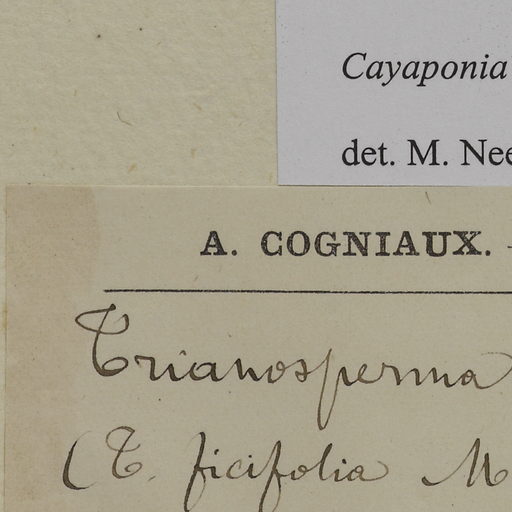 Cayaponia
det. M. Nee
A. COGNIAUX. -
Trianosperma
(T. ficifolia M